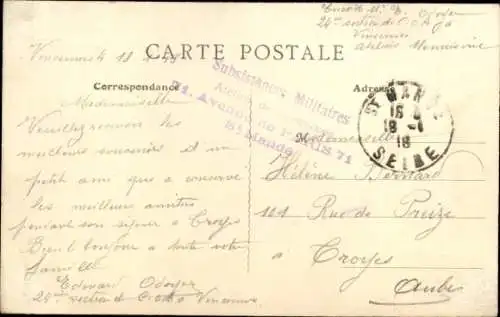 Envoi de Mr E. Odoyer
24me section de C.O.A.
Vincennes
Vincennes 18
CARTE POSTALE
Correspondance
Adresse
Subsistances Militaires
71, Avenue de PARIS 71
St Mandé
ST MANDÉ
18
SEINE
Mademoiselle
Veuillez recevoir les
meilleurs souvenirs et un
petit ami que a conservé
les meilleurs amitiés
pendant son séjour a Troyes
Bien le bonjour a toute votre
famille
Edouard Odoyer
24me section de Vincennes
Mademoiselle
Hélène Bernard
101 Rue de Preize
a Troyes
Aube